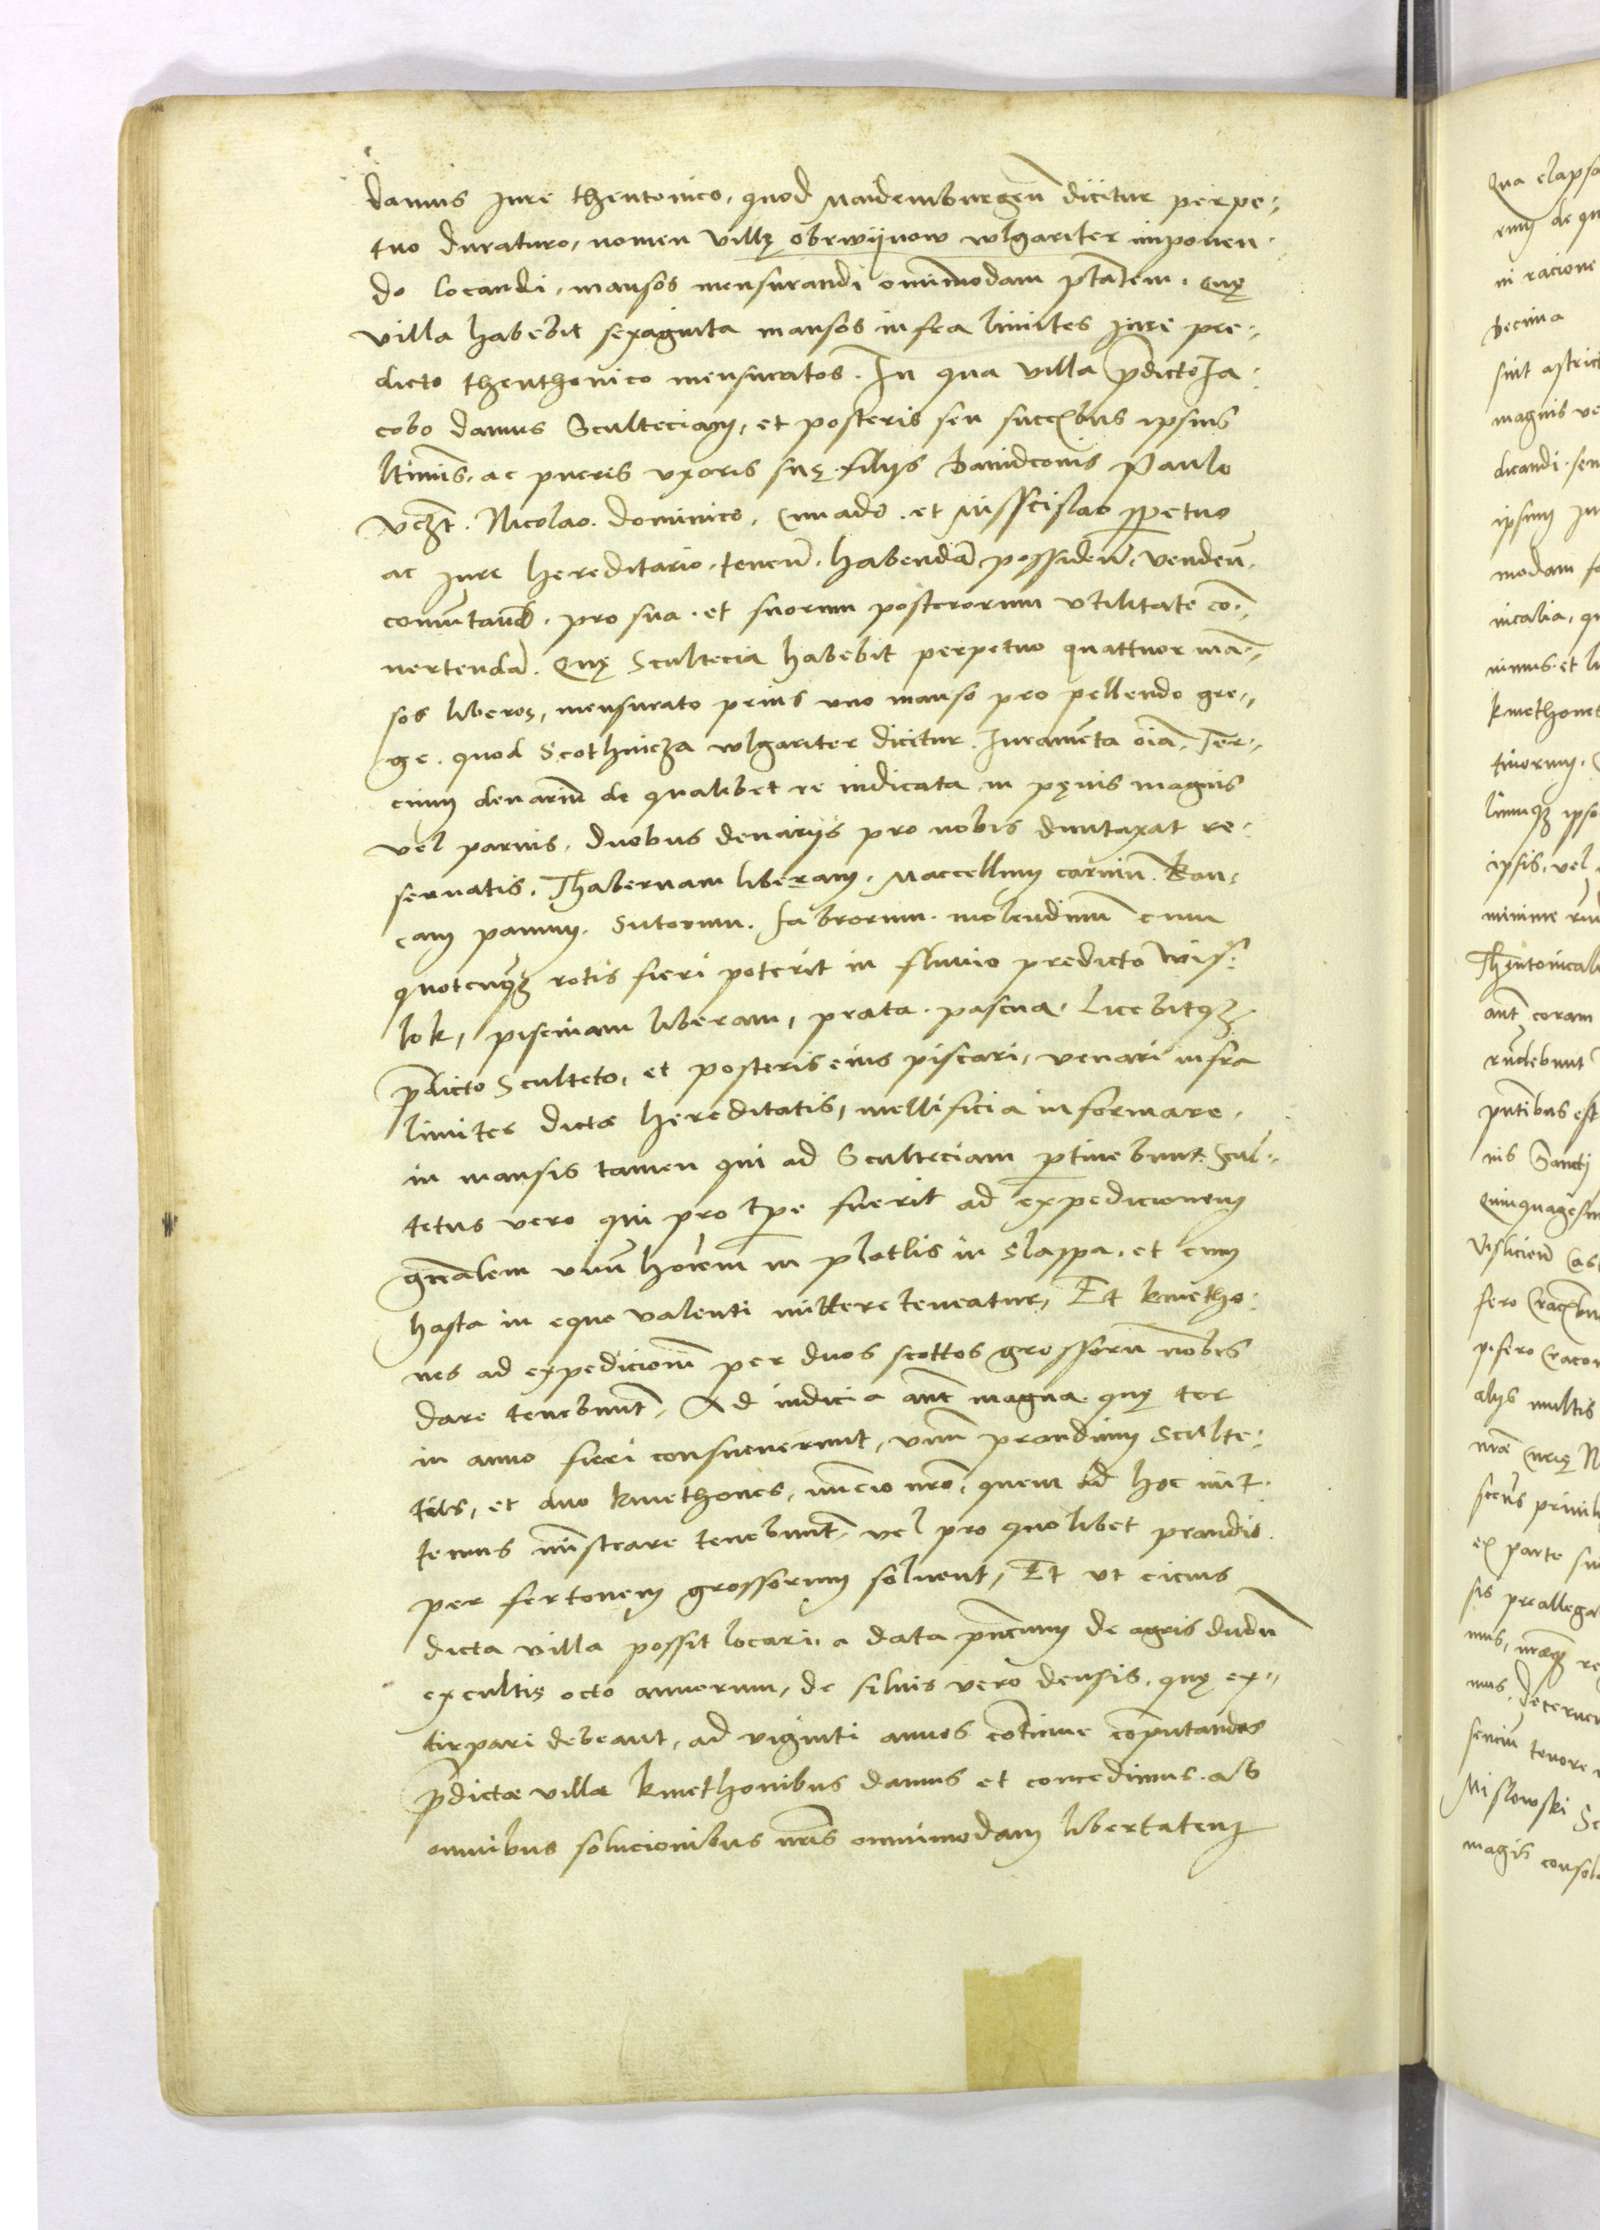 damus Jure thentonico, quod Maidemburgen̄ dicitur perpe-
tuo duraturo, nomen villę obrwijnow wlgariter imponen-
do locandi, mansos mensurandi omnimodam ptātem. Quę
villa habebit sexaginta mansos infra limites Jure pre-
dicto thenthonico mensuratos. In qua villa p̄dicto Ja-
cobo damus Sculteciam, et posteris seu succ̄bus ipsius
ltimis. ac pueris vxoris suę. filijs Dauidconis Paulo
Nicolao. Dominico. et Misscislao ꝑpetuo
ac Jure Hereditario, tenen̄. habendā possiden̄. venden̄.
comutand̄. pro sua. et suorum posterorum vtilitate co-
nertendā. Quę Scultecia habebit perpetuo quattuor mā-
sos liberos, mensurato prius vno manso pro pellendo gre-
ge. quod Scothnicza wlgariter dicitur. Iuramenta oīa. Ter-
cium denariū de qualibet re iudicata in pęnis magnis
vel paruis. duobus denarijs pro nobis duntaxat re-
seruatis. Thabernam liberam. Maccellum carniu. Ban-
cam panum. Sutorum. fabrorum. molendinū cum
quotcūqꝫ rotis fieri poterit in fluuio predicto Wis-
lok, piscinam liberam, prata. pascua. Licebitqꝫ
p̄dicto Sculteto, et posteris eius piscari, venari infra
limites dictæ hereditatis, mellificia informare.
in mansis tamen qui ad Sculteciam ꝑtinebunt. Scul-
tetus vero qui pro tpe fuerit ad expedicionem
gn̄alem vnū hoīem in platlis in slappa. et cum
hasta in equo valenti mittere teneatur, Et kmetho-
nes ad expedicionē per duos scottos grossorū nobis
dare tenebunt. Ad iudicia aut̄ magna quę ter
in anno fieri consueuerunt, vnū prandium Sculte-
tus, et duo kmethones, nuncio nr̄o, quem ad hoc mit-
temus mīstrare tenebunt, vel pro quolibet prandio
per fertonem grossorum soluent, Et ut cicius
dicta villa possit locari. a data pn̄cium de agris dudū
excultis octo annorum, de siluis vero densis, quę ex-
tirpari debeant, ad viginti annos continue computandos
p̄dictæ villæ kmethonibus damus et concedimus. ab
omnibus solucionibus nr̄is omnimodam libertatem
Qua elapsa
in racione
decima
magnis
dicandi. seu
modam
nicalia, qu
nimus. et
kmethones
ipsis, vel
minime
Thentonical
aut̄ coram
nis Sancti
Quinquagesim
alijs multis
ex parte
sis preallega
nus. decerne
tenore
Mislowski
magis consol